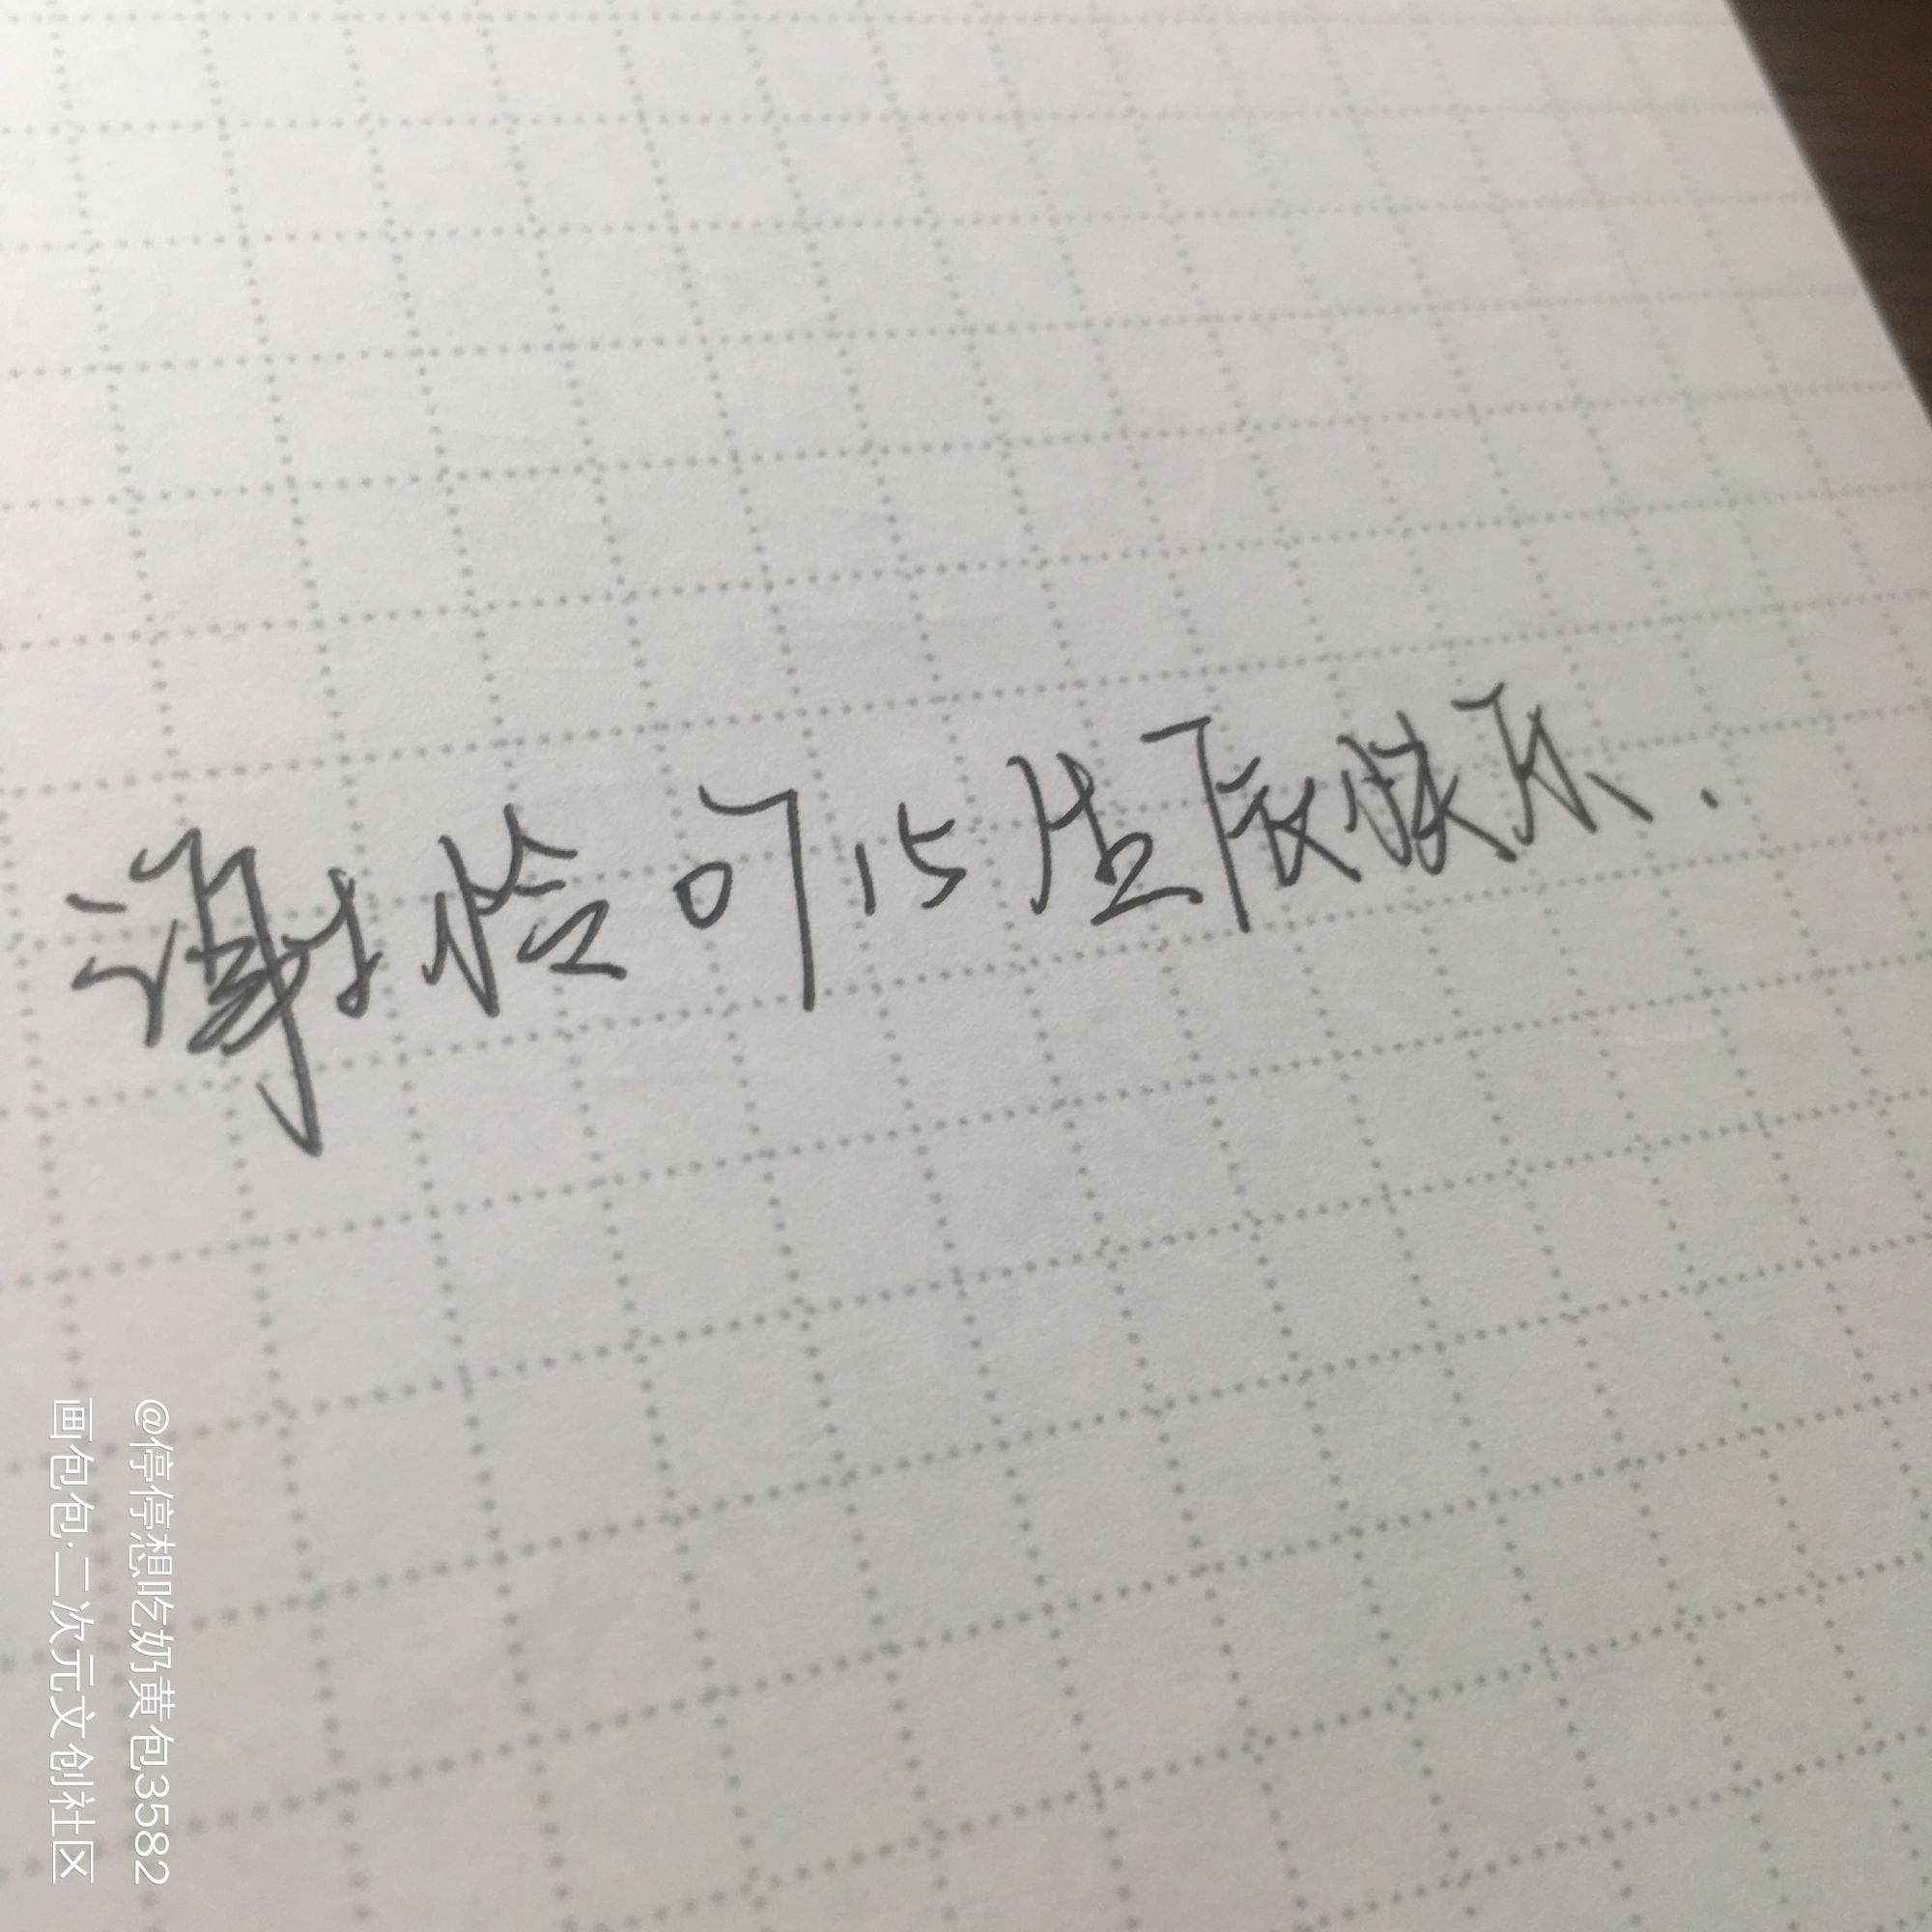 谢怜0715生辰快乐.
@停停想吃奶黄包3582
画包包·二次元文创社区